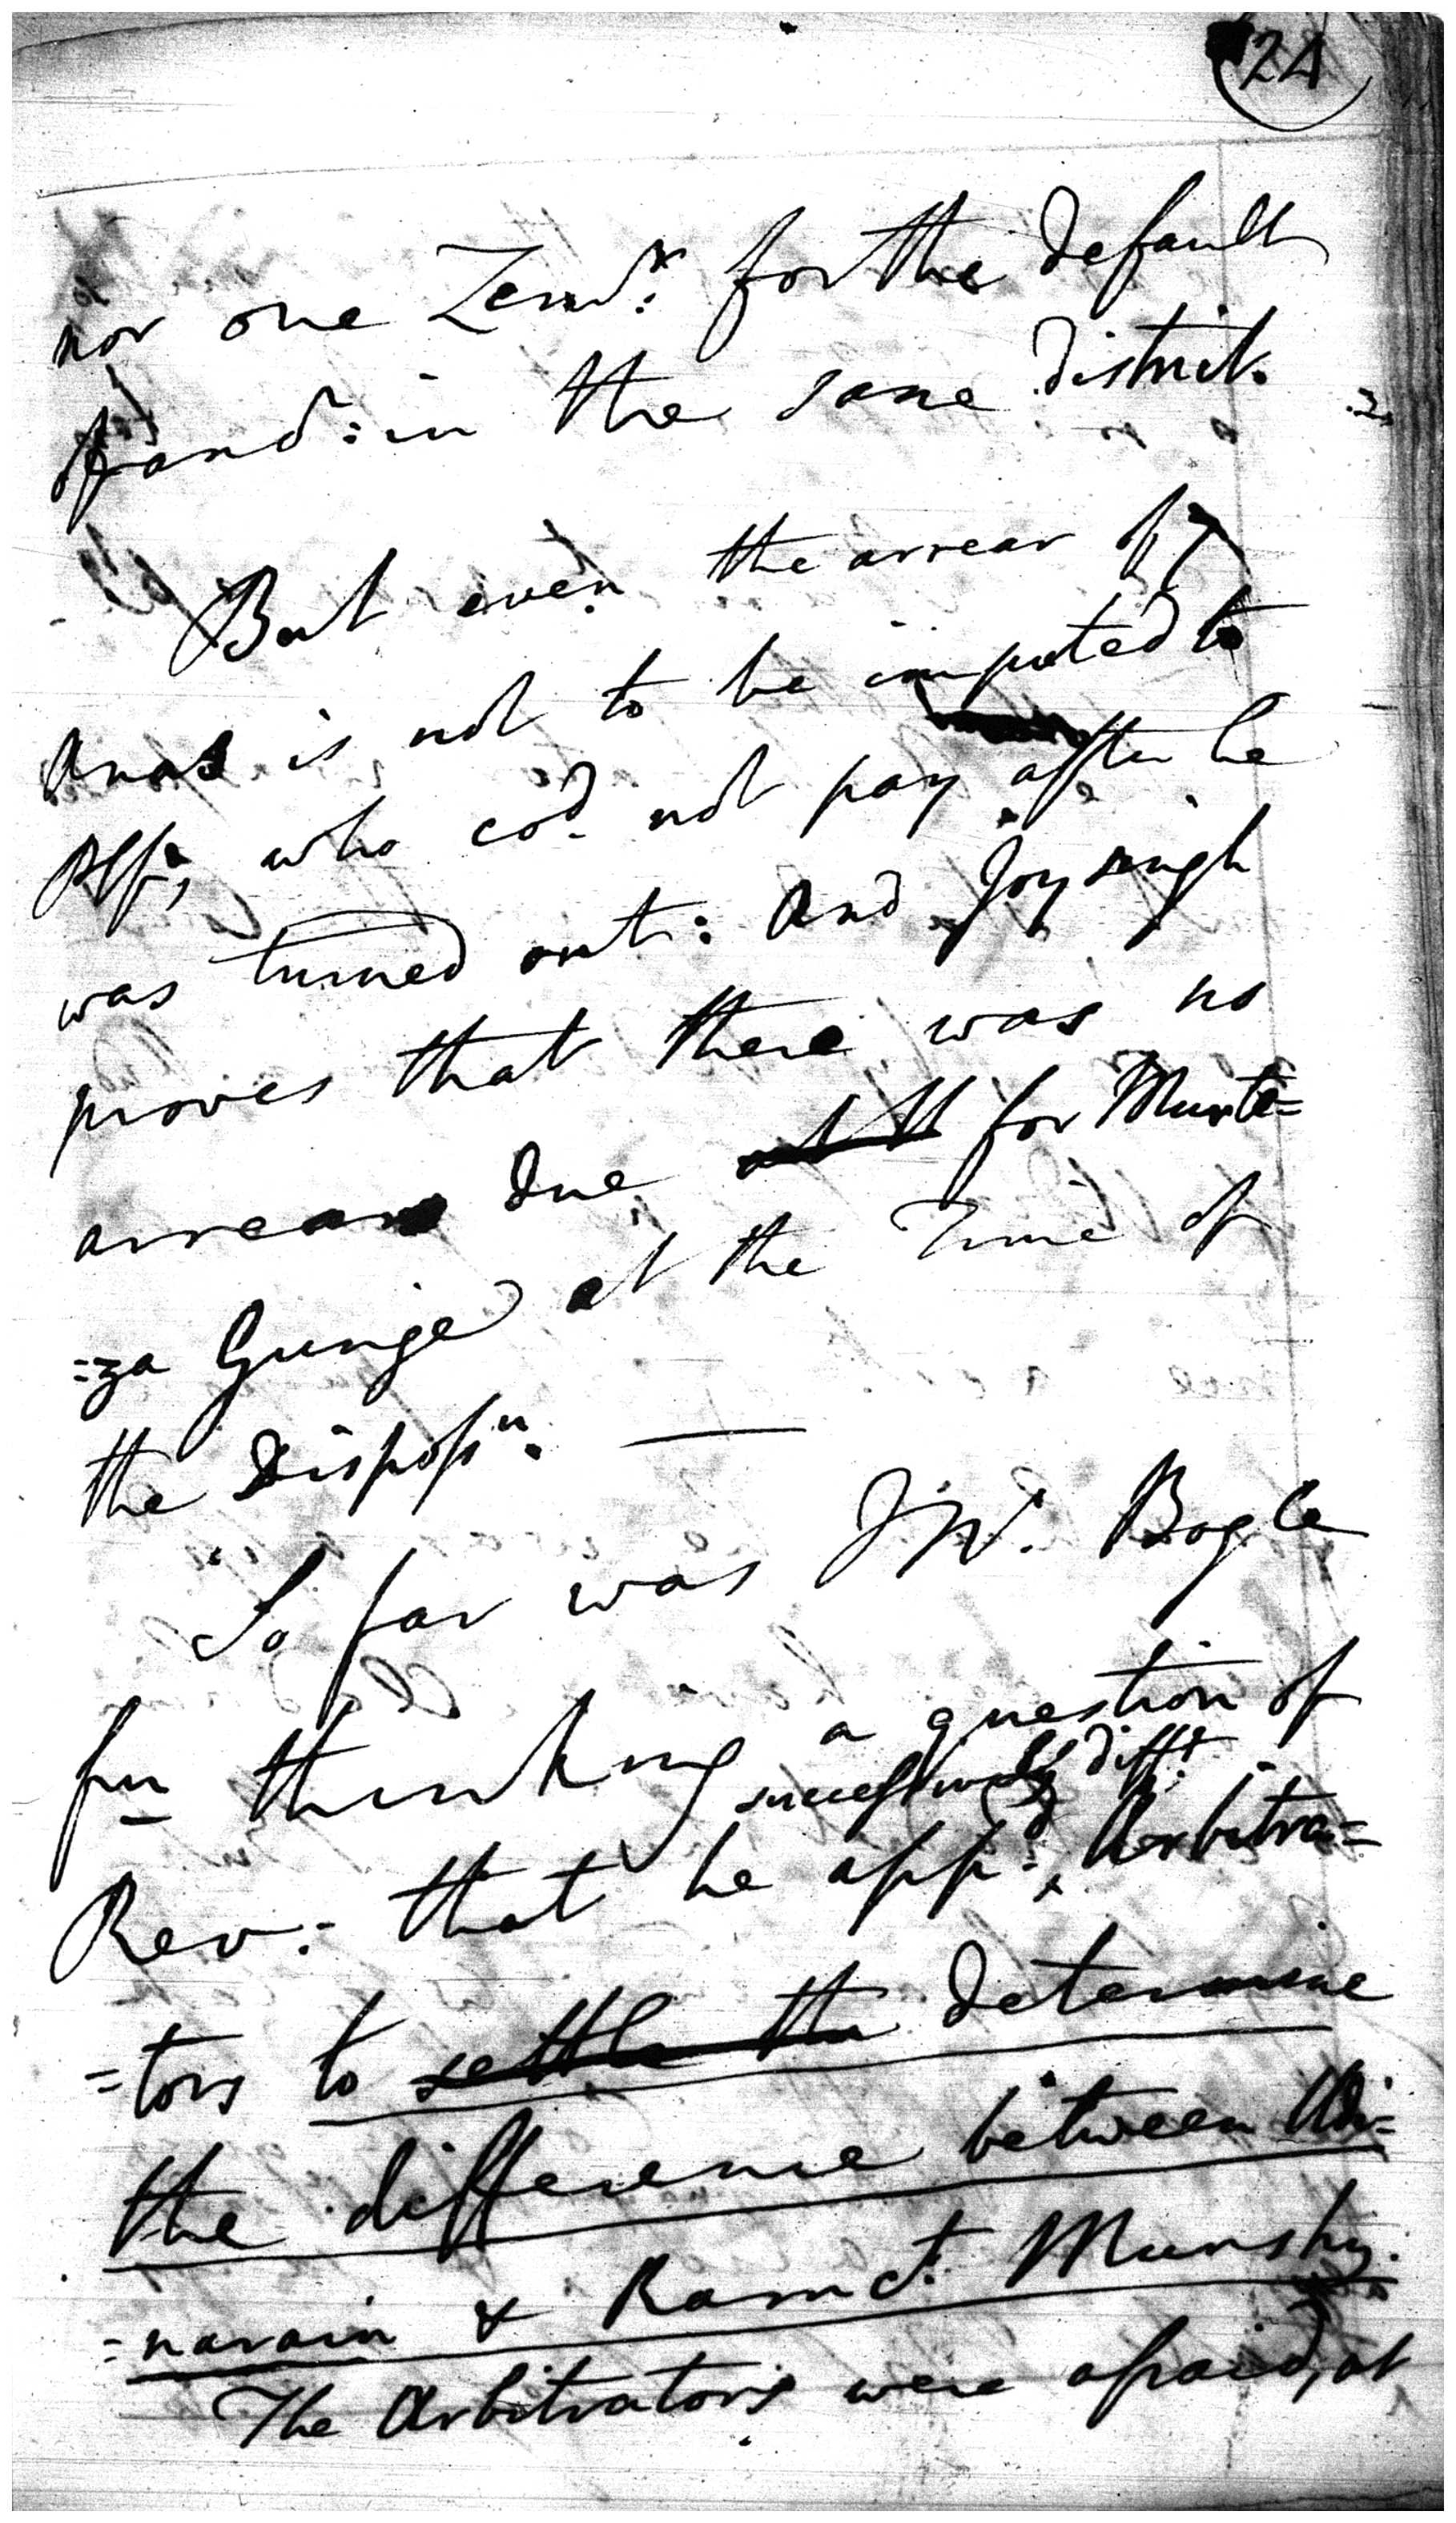 24
nor one Zemr. for the default
of and: in the same district.
But even the arrear of 7
Anas is not to be imputed to
Plfs, who cod. not pay after he
was turned out: And Joy singh
proves that there was no
arrear due at tt for Murte=
=za Gunge at the Time of
the Disposſn. —
So far was J W. Bogle
fm thinking a question of
successively difft.
Rev: that he appd. Arbitra=
=tors to settle the determine
the difference between Udi=
=narain & Ramct. Munshy.
The Arbitrators were afraid, at